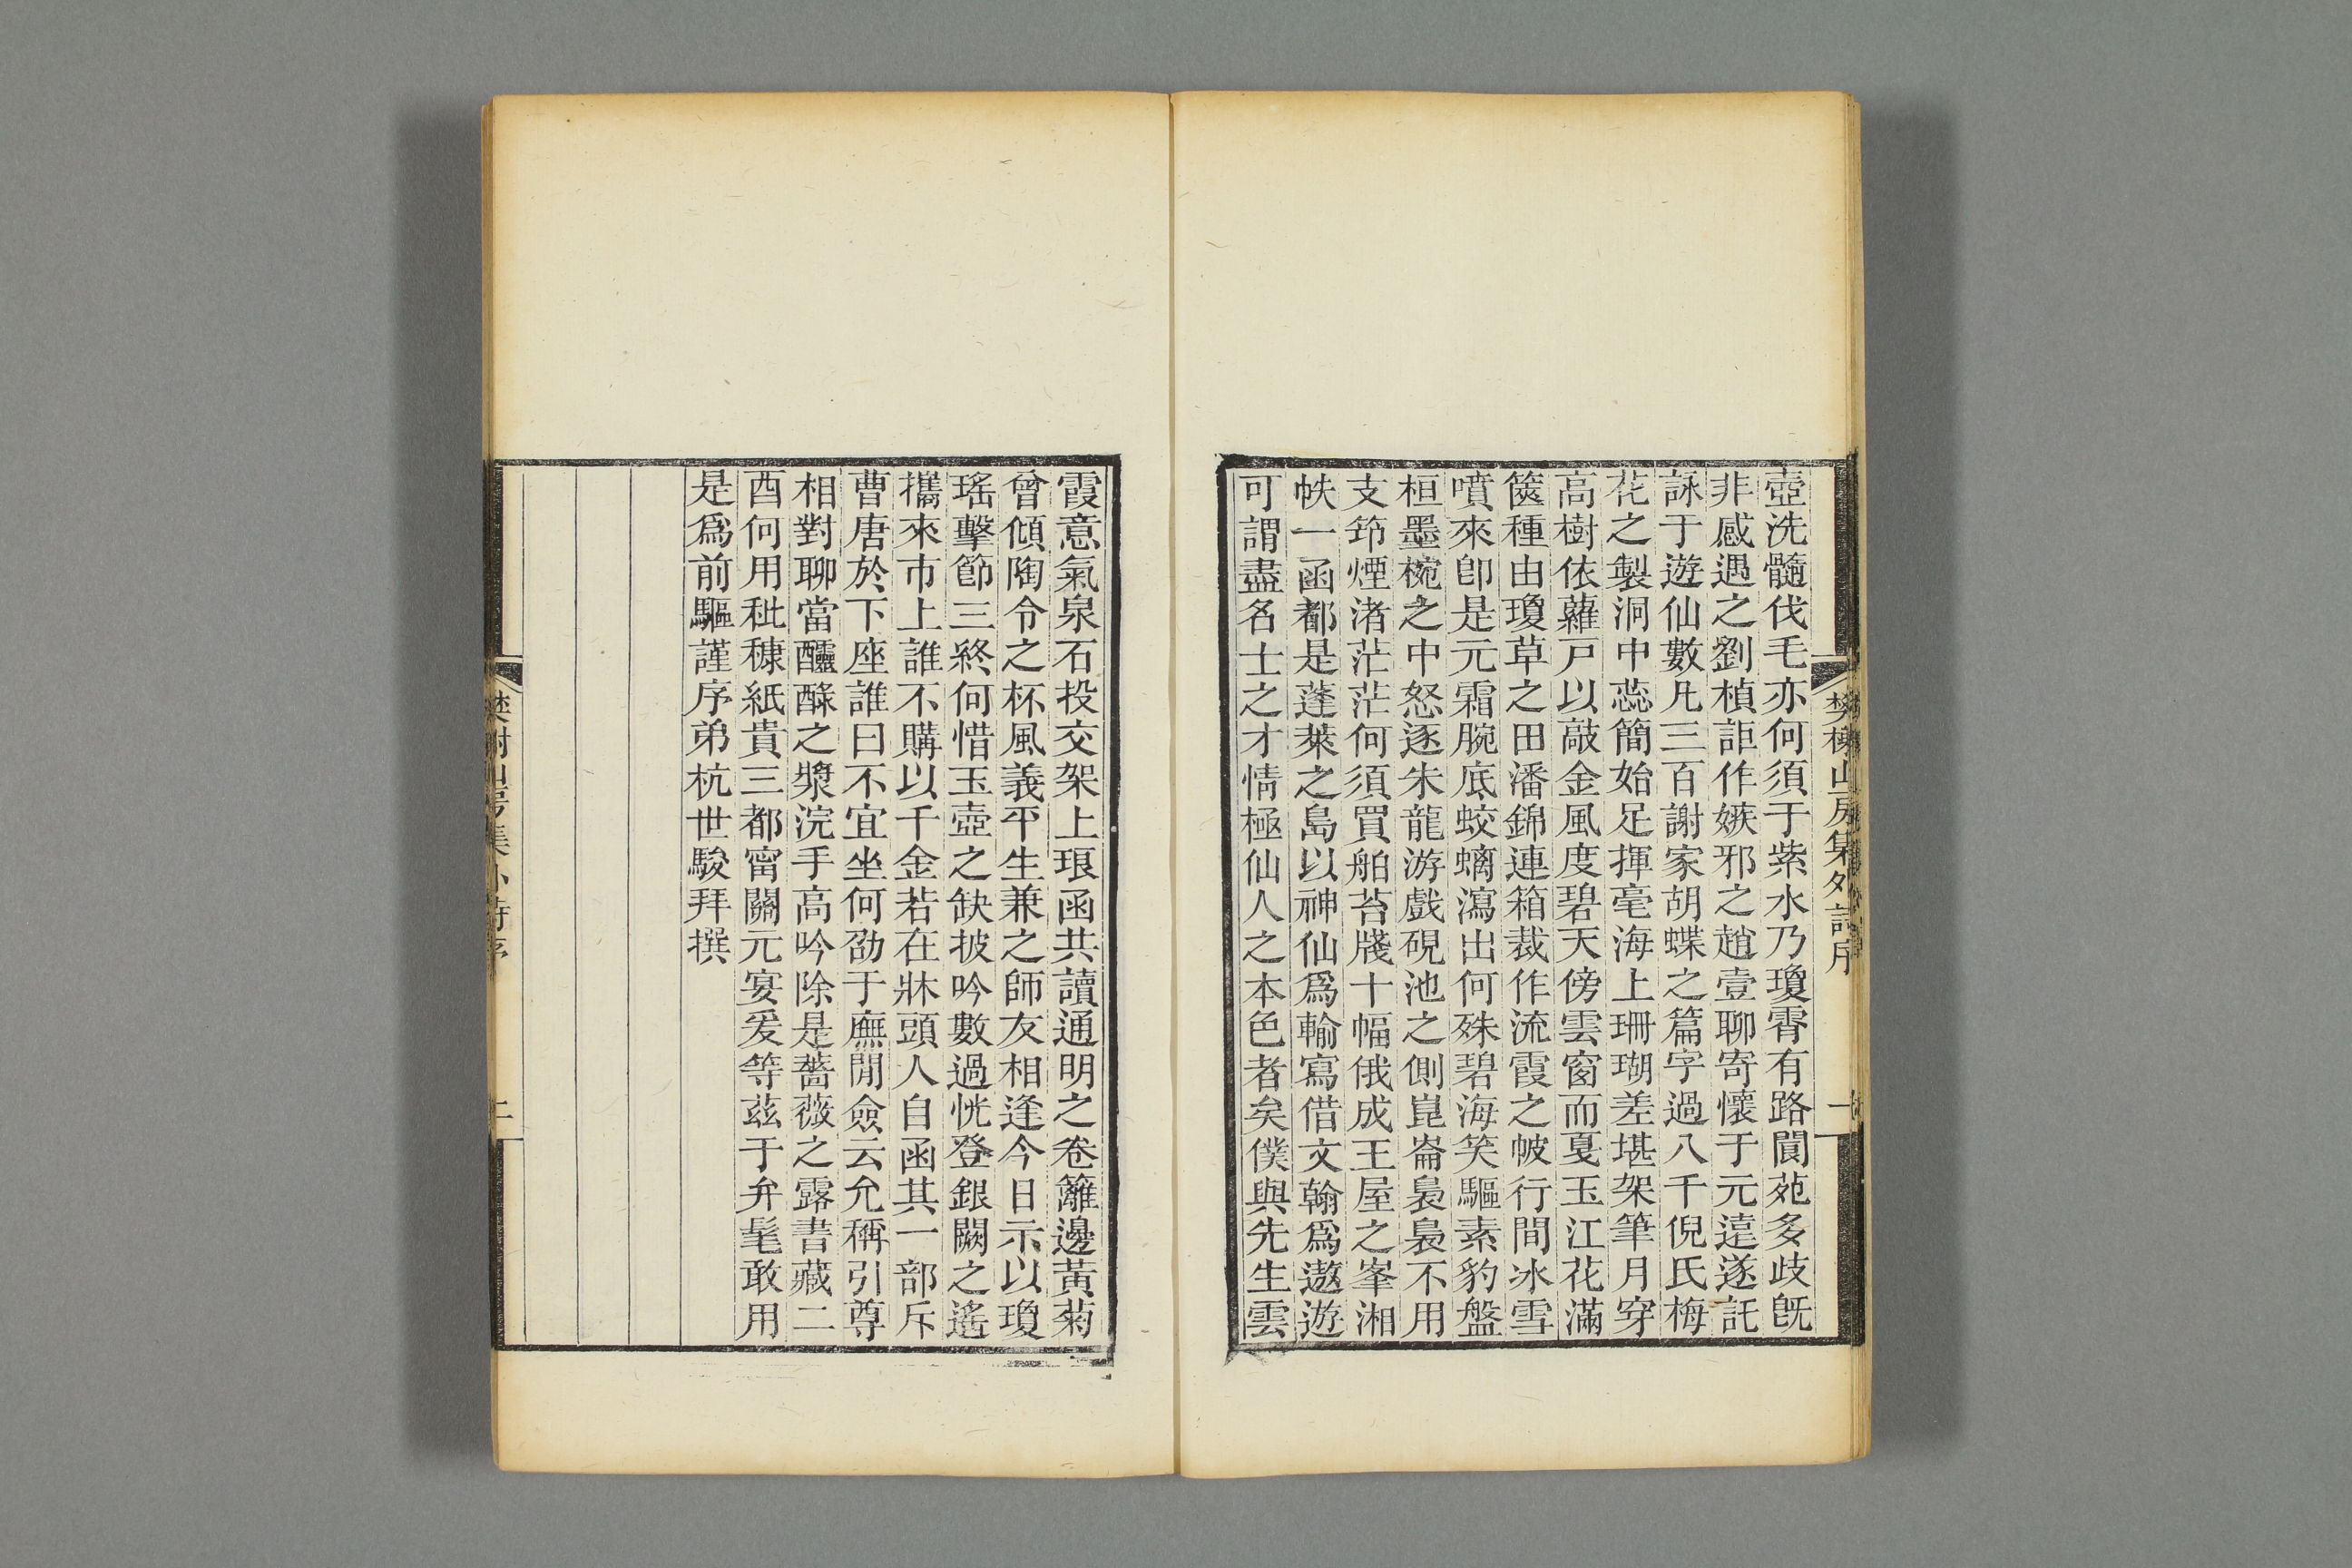 壺洗髓伐毛亦何須于紫水乃瓊霄有路閬苑多歧旣
非感遇之劉楨詎作嫉邪之趙壹聊寄懷于元遠遂託
詠于遊仙數凡三百謝家胡蝶之篇字過八千倪氏梅
花之製洞中蕊簡始足揮毫海上珊瑚差堪架筆月穿
高樹依蘿戸以敲金風度碧天傍雲窗而戛玉江花滿
篋種由瓊草之田潘錦連箱裁作流霞之帔行間冰雪
噴來卽是元霜腕底蛟螭瀉出何殊碧海笑驅素豹盤
桓墨椀之中怒逐朱龍游戲硯池之側崑崙裊裊不用
支筇煙渚茫茫何須買舶苔牋十幅俄成王屋之峯湘
帙一函都是蓬萊之島以神仙爲輸寫借文翰爲遨遊
可謂盡名士之才情極仙人之本色者矣僕與先生雲
樊榭山房集外詩序
一
霞意氣泉石投交架上琅函共讀通明之卷籬邊黃菊
曾傾陶令之杯風義平生兼之師友相逢今日示以瓊
瑤擊節三終何惜玉壺之缺披吟數過恍登銀闕之遙
攜來市上誰不購以千金若在牀頭人自函其一部斥
曹唐於下座誰曰不宜坐何劭于廡閒僉云允稱引尊
相對聊當醽醁之漿浣手高吟除是薔薇之露書藏二
酉何用秕穅紙貴三都甯關元宴爰等茲于弁髦敢用
是爲前驅謹序弟杭世駿拜撰